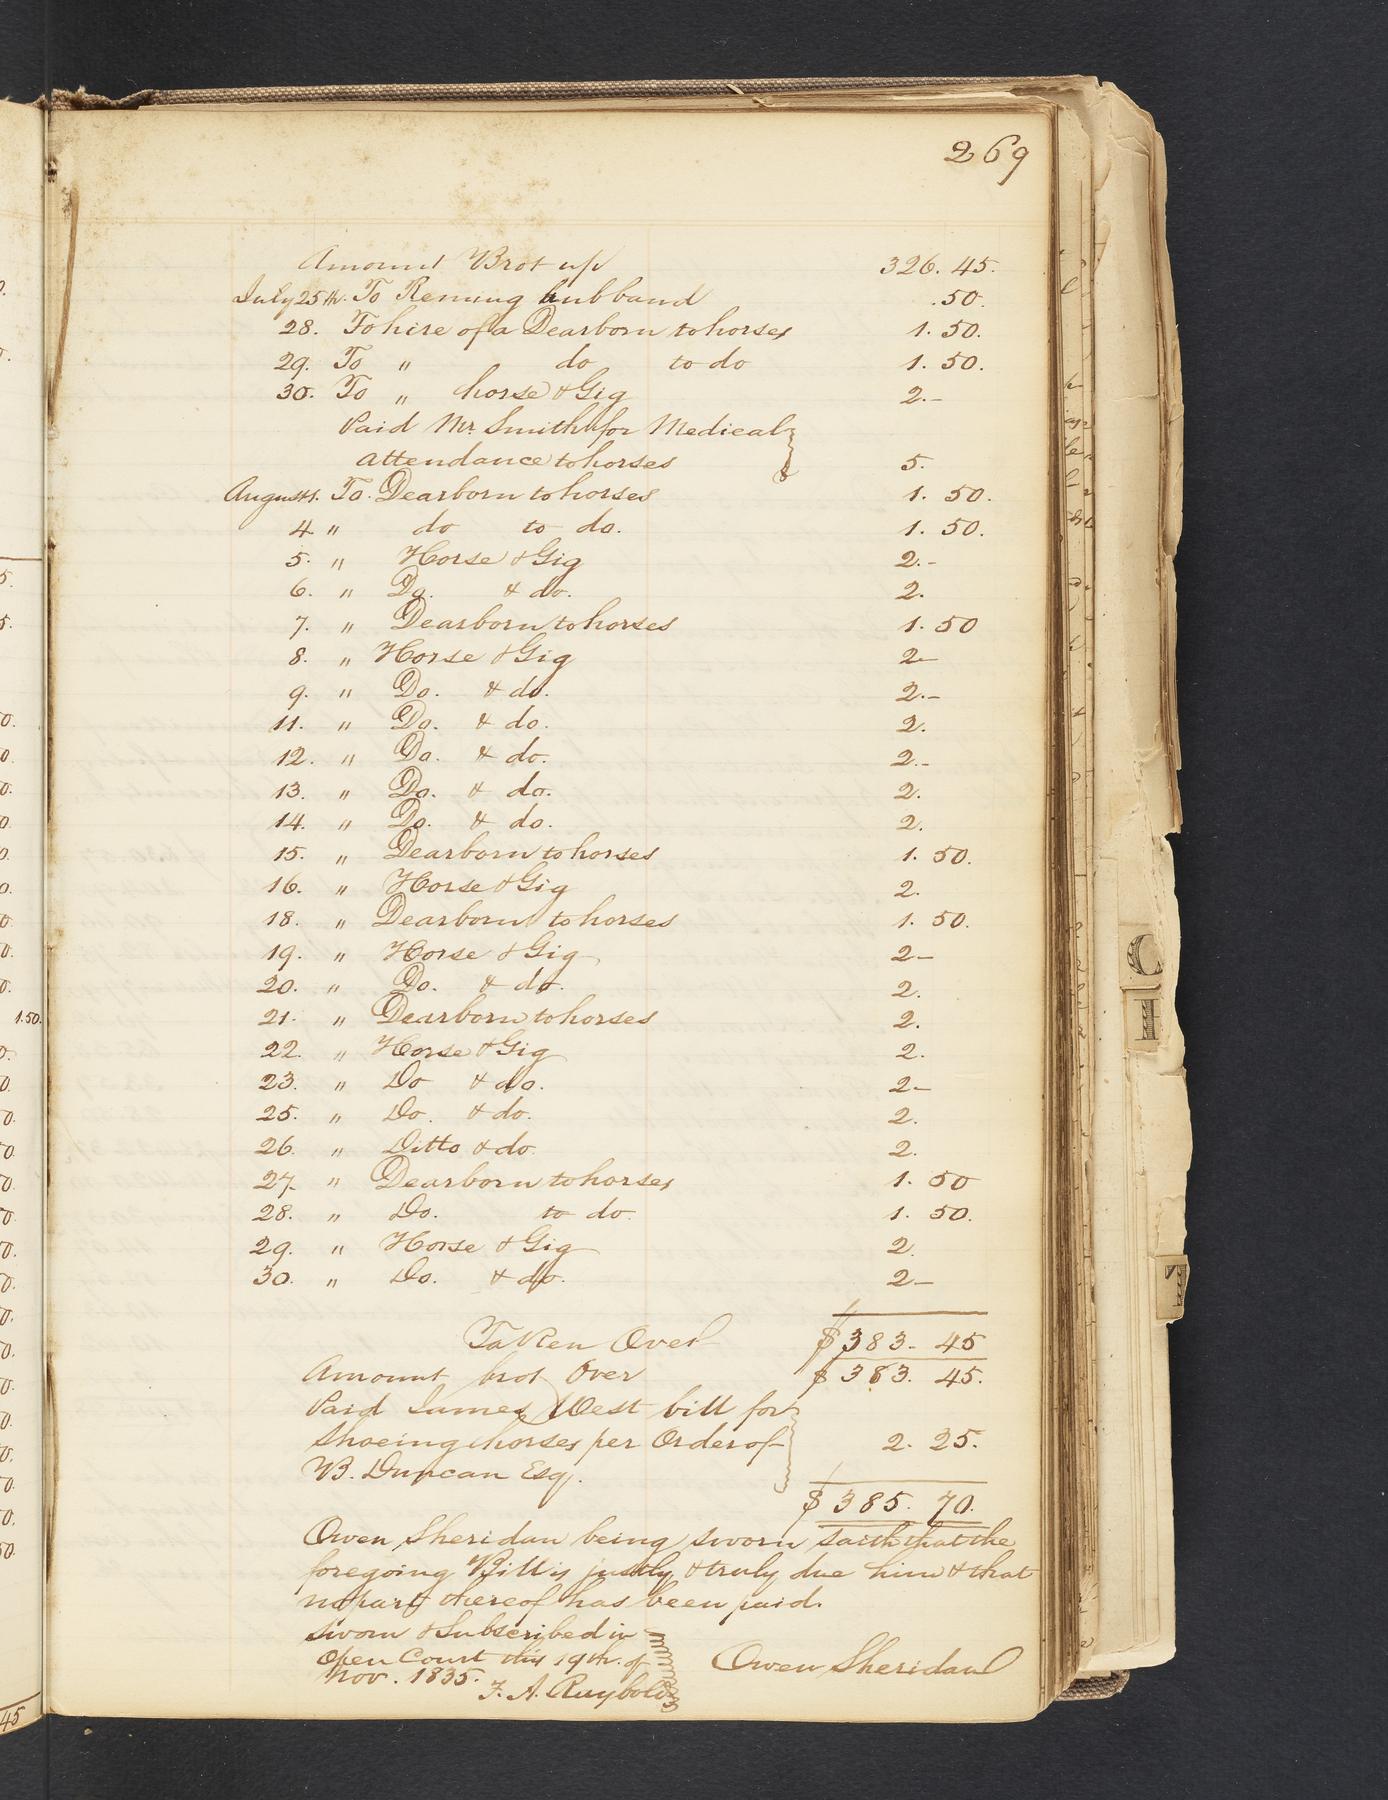 269
Amount Brot up 326.45.
July 25th. To Reming hubband .50.
28. To hire of a Dearborn to horses 1.50.
29. To " do to do 1.50.
30. To " horse & Gig 2.-
Paid Mr. Smith for Medical
attendance to horses 5.
August 1. To. Dearborn to horses 1.50.
4 " do to do. 1.50.
5. " Horse & Gig 2.-
6. " Do. & do. 2.
7. " Dearborn to horses 1.50
8. " Horse & Gig 2-
9. " Do. & do. 2.-
11. " Do. & do. 2.
12. " Do. & do. 2.-
13. " Do. & do. 2.
14. " Do. & do. 2.
15. " Dearborn to horses 1.50.
16. " Horse & Gig 2.
18. " Dearborn to horses 1.50.
19. " Horse & Gig 2-
20. " Do. & do. 2.
21. " Dearborn to horses 2.
22. " Horse & Gig 2.
23. " Do & do. 2-
25. " Do. & do. 2.
26. " Ditto & do. 2.
27. " Dearborn to horses 1.50
28. " Do. to do. 1.50.
29. " Horse & Gig 2.
30. " Do. & do. 2-
Taken Over $383.45
Amount brot Over $383.45.
Paid James West bill for
Shoeing horses per Order of 2.25.
B. Duncan Esq.
$385.70.
Owen Sheridan being sworn saith that the
foregoing Bill is justly & truly due him & that
no part thereof has been paid.
Sworn & Subscribed in
Open Court this 19th. of Owen Sheridan
Nov. 1835.
F. A. Ruybold
1.50.
45
C
I
T